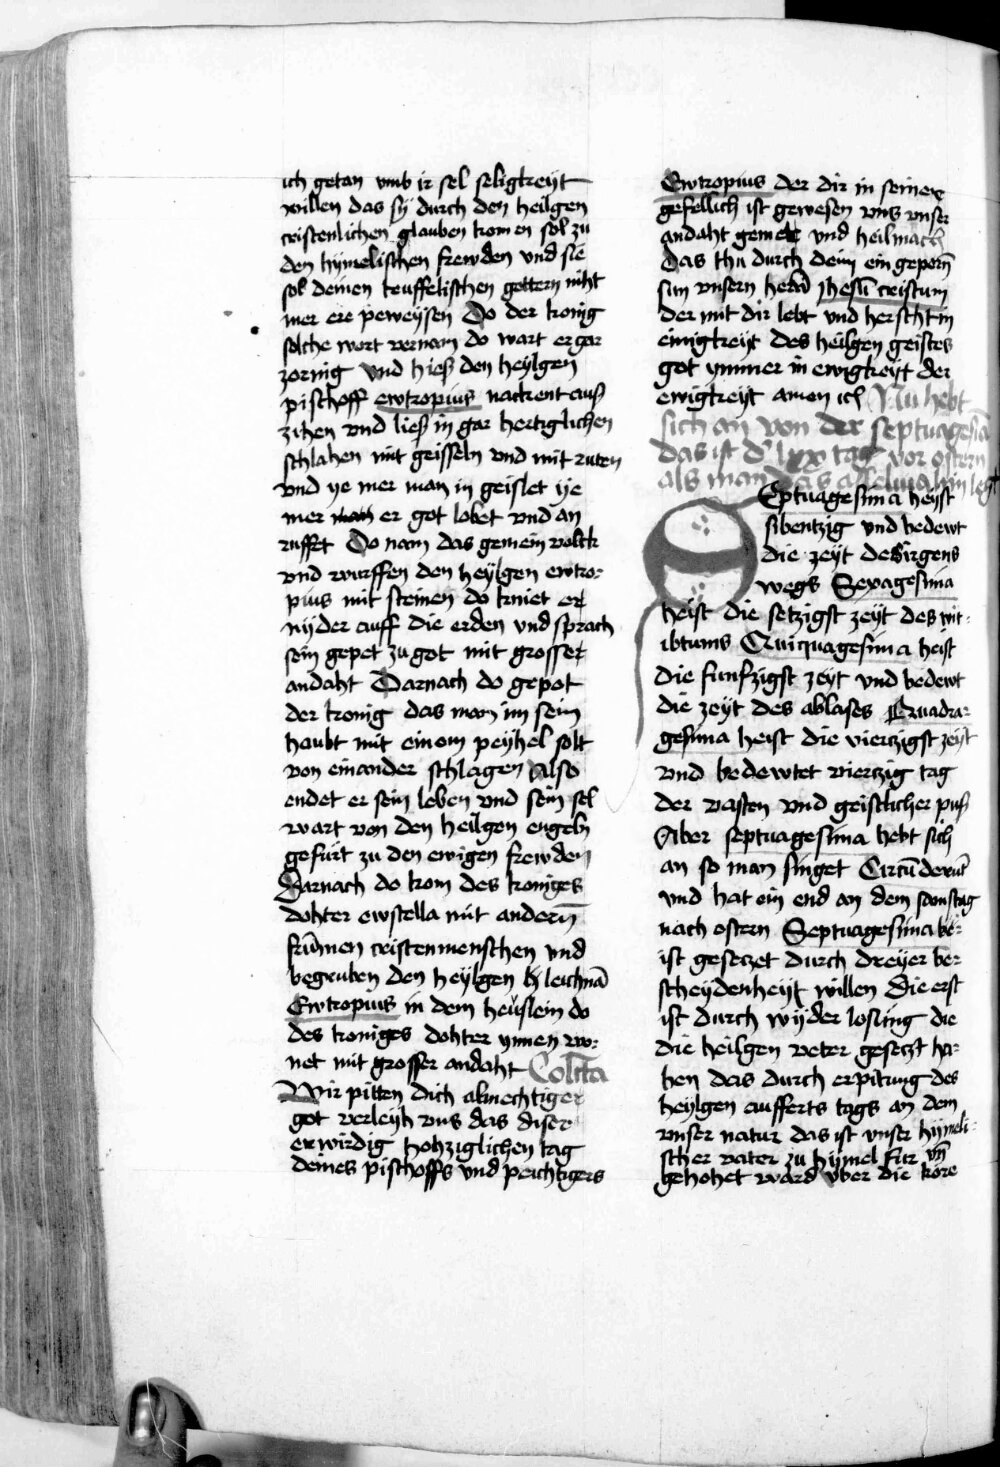 ich getan vmb ir sel seligkeyt
willen das sy durch den heilgen
cristenlichen glauben komen sol zu
den hymelischen frewden vnd sie
sol deinen teuffelischen gottern niht
mer ere peweysen Do der konig
solche wort vernam do wart er gar
zornig vnd hieß den heylgen
pischoff ewtropius nackent auß
zihen vnd ließ in gar hertiglichen
schlahen mit geisseln vnd mit ruten
vnd ye mer man in geislet ye
mer er got lobet vnd an
rufft Do nam das gemein volck
vnd wurffen den heylgen ewtro-
pius mit steinen do kniet er
nyder auff die erden vnd sprach
sein gepet zu got mit grosser
andaht Darnach do gepot
der konig das man im sein
haubt mit einem peyhel solt
von einander schlagen Also
endet er sein leben vnd sein sel
wart von den heilgen engeln
gefurt zu den ewigen frewden
Darnach do kom des koniges
dohter ewstella mit andern
frumen cristenmenschen vnd
begruben den heylgen leichnā
Ewtropius in dem heuslein do
des koniges dohter ynnen wo-
net mit grosser andaht Colcta
Wir pitten dich almechtiger
got verleyh vns das diser
erwirdig hohziglichen tag
deines pischoffs vnd peichtigers
Ewtropius der dir in seiner
gefellich ist gewesen vns vnser
andaht gemer vnd heilmach
Das thu durch dein eingeporn̄
sun vnsern hern̄ Jhesū cristum
der mit dir lebt vnd herscht in
einigkeyt des heilgen geistes
got ymmer in ewigkeyt der
ewigkeyt amen ich Nu hebt
sich an von der septuagesiā
das ist d' lxx tag vor ostern
als man das alleluia hin legt
Septuagesima heyst
sibentzig vnd bedewt
die zeyt des irgens
wegs Sexagesima
heist die setzigst zeyt des wit-
ibtums Quiquagesima heist
die funfzigst zeyt vnd bedewt
die zeyt des ablases Quadra-
gesima heist die viertzigst zeyt
vnd bedewtet viertzig tag
der vasten vnd geistlicher puß
Aber septuagesima hebt sich
an so man singet Circūdederūt
vnd hat ein end an dem sonstag
nach ostern Septuagesima
ist gesetzet durch dreyer be-
scheydenheyt willen Die erst
ist durch wyder losung die
die heilgen veter gesetzt ha-
ben das durch erpitung des
heylgen aufferts tags an dem
vnser natur das ist vnser hymeli-
scher vater zu hymel fur vn̄
gehohet ward vber die kore